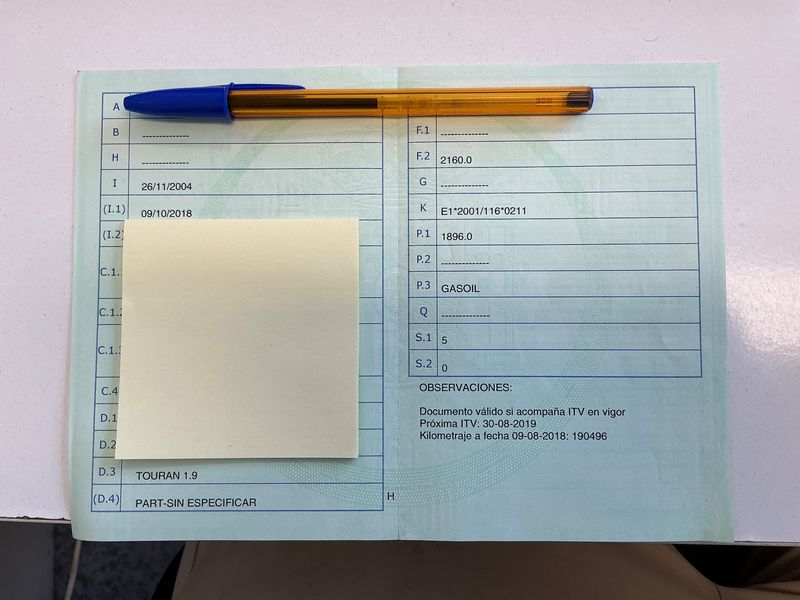 A
B --------------
H --------------
I 26/11/2004
(I.1) 09/10/2018
(I.2)
C.1.
C.1.
C.1.
C.4
D.1
D.2
D.3 TOURAN 1.9
(D.4) PART-SIN ESPECIFICAR
F.1 --------------
F.2 2160.0
G --------------
K E1*2001/116*0211
P.1 1896.0
P.2 --------------
P.3 GASOIL
Q --------------
S.1 5
S.2 0
OBSERVACIONES:
Documento válido si acompaña ITV en vigor
Próxima ITV: 30-08-2019
Kilometraje a fecha 09-08-2018: 190496
H